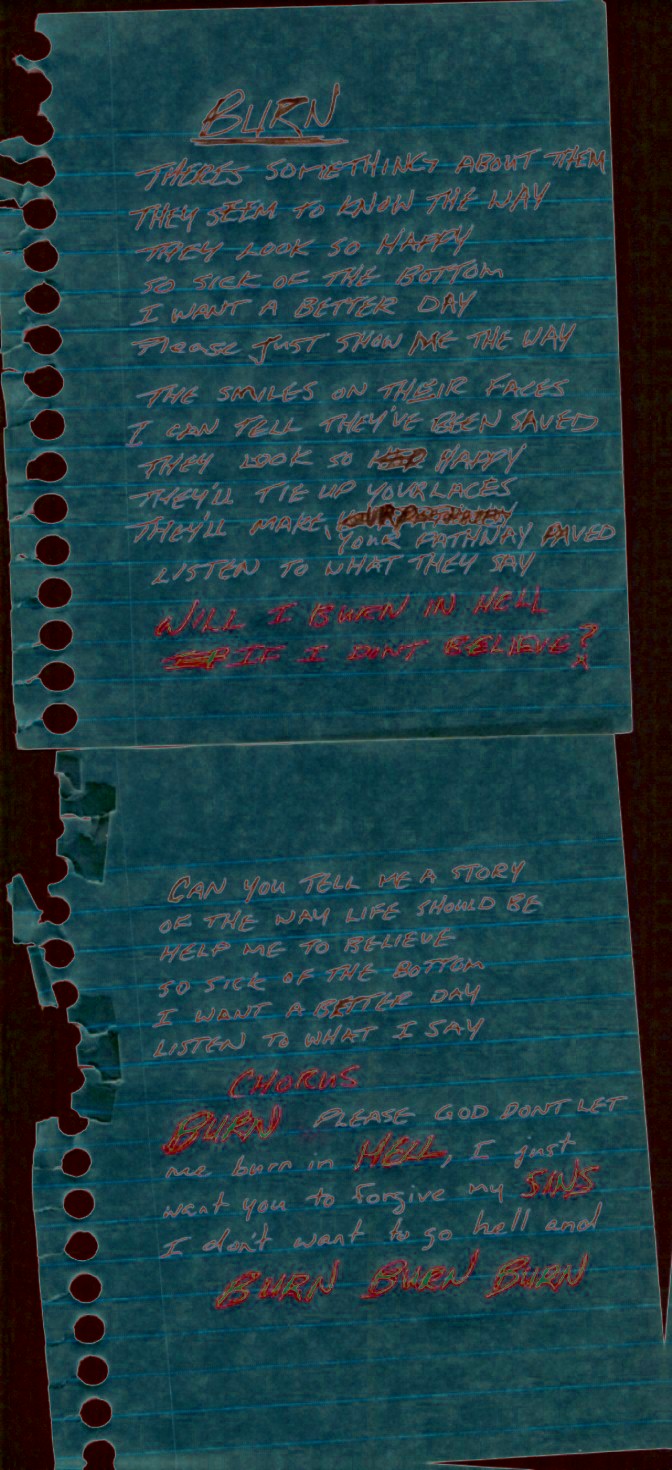 BURN
THERES SOMETHING ABOUT THEM
THEY SEEM TO KNOW THE WAY
THEY LOOK SO HAPPY
SO SICK OF THE BOTTOM
I WANT A BETTER DAY
Please JUST SHOW ME THE WAY
THE SMILES ON THEIR FACES
I CAN TELL THEY'VE BEEN SAVED
THEY LOOK SO HAPPY
THEY'LL TIE UP YOUR LACES
THEY'LL MAKE
YOUR PATHWAY PAVED
LISTEN TO WHAT THEY SAY
WILL I BURN IN HELL
IF I DONT BELIEVE?
CAN YOU TELL ME A STORY
OF THE WAY LIFE SHOULD BE
HELP ME TO BELIEVE
SO SICK OF THE BOTTOM
I WANT A BETTER DAY
LISTEN TO WHAT I SAY
CHORUS
BURN PLEASE GOD DONT LET
me burn in HELL, I just
want you to forgive my SINS
I don't want to go hell and
BURN BURN BURN